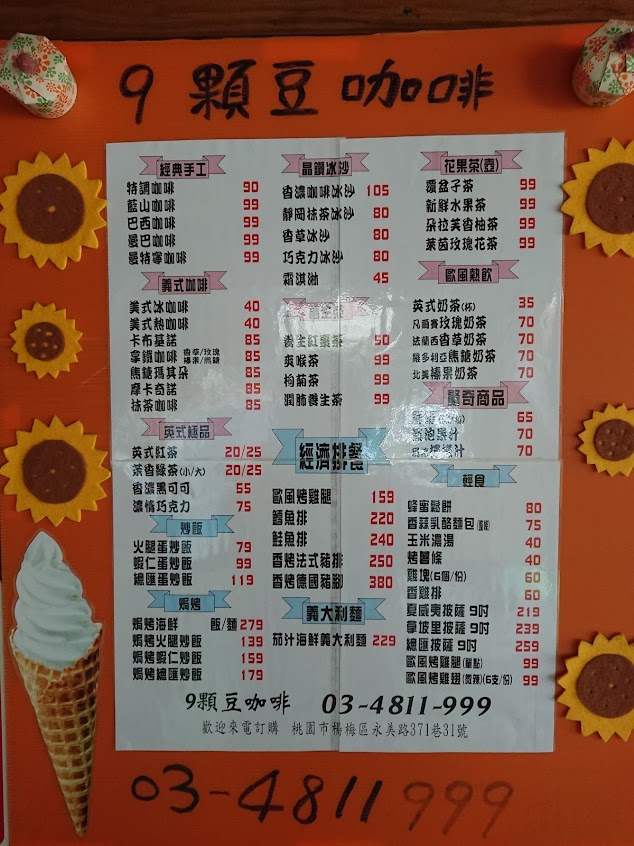 9顆豆咖啡
經典手工
特調咖啡 90
藍山咖啡 99
巴西咖啡 99
曼巴咖啡 99
曼特寧咖啡 99
義式咖啡
美式冰咖啡 40
美式熱咖啡 40
卡布基諾 85
拿鐵咖啡 香草/玫瑰 榛果/焦糖 85
焦糖瑪其朵 85
摩卡奇諾 85
抹茶咖啡 85
英式極品
英式紅茶 20/25
茉香綠茶(小/大) 20/25
香濃黑可可 55
濃情巧克力 75
炒飯
火腿蛋炒飯 79
蝦仁蛋炒飯 99
總匯蛋炒飯 119
焗烤
焗烤海鮮 飯/麵 279
焗烤火腿炒飯 139
焗烤蝦仁炒飯 159
焗烤總匯炒飯 179
晶鑽冰沙
香濃咖啡冰沙 105
靜岡抹茶冰沙 80
香草冰沙 80
巧克力冰沙 80
霜淇淋 45
養生紅棗茶 50
爽喉茶 99
枸菊茶 99
潤肺養生茶 99
經濟排餐
歐風烤雞腿 159
鱈魚排 220
鮭魚排 240
香烤法式豬排 250
香烤德國豬腳 380
義大利麵
茄汁海鮮義大利麵 229
花果茶(壺)
覆盆子茶 99
新鮮水果茶 99
朵拉芙香柚茶 99
萊茵玫瑰花茶 99
歐風熱飲
英式奶茶(杯) 35
凡爾賽玫瑰奶茶 70
法蘭西香草奶茶 70
維多利亞焦糖奶茶 70
北美榛果奶茶 70
驚奇商品
65
氣泡果汁 70
70
輕食
蜂蜜鬆餅 80
香蒜乳酪麵包 75
玉米濃湯 40
烤薯條 40
雞塊(6個/份) 60
香雞排 60
夏威夷披薩 9吋 219
拿坡里披薩 9吋 239
總匯披薩 9吋 259
歐風烤雞腿(單點) 99
歐風烤雞翅(微辣)(6支/份) 99
9顆豆咖啡 03-4811-999
歡迎來電訂購 桃園市楊梅區永美路371巷31號
03-4811999